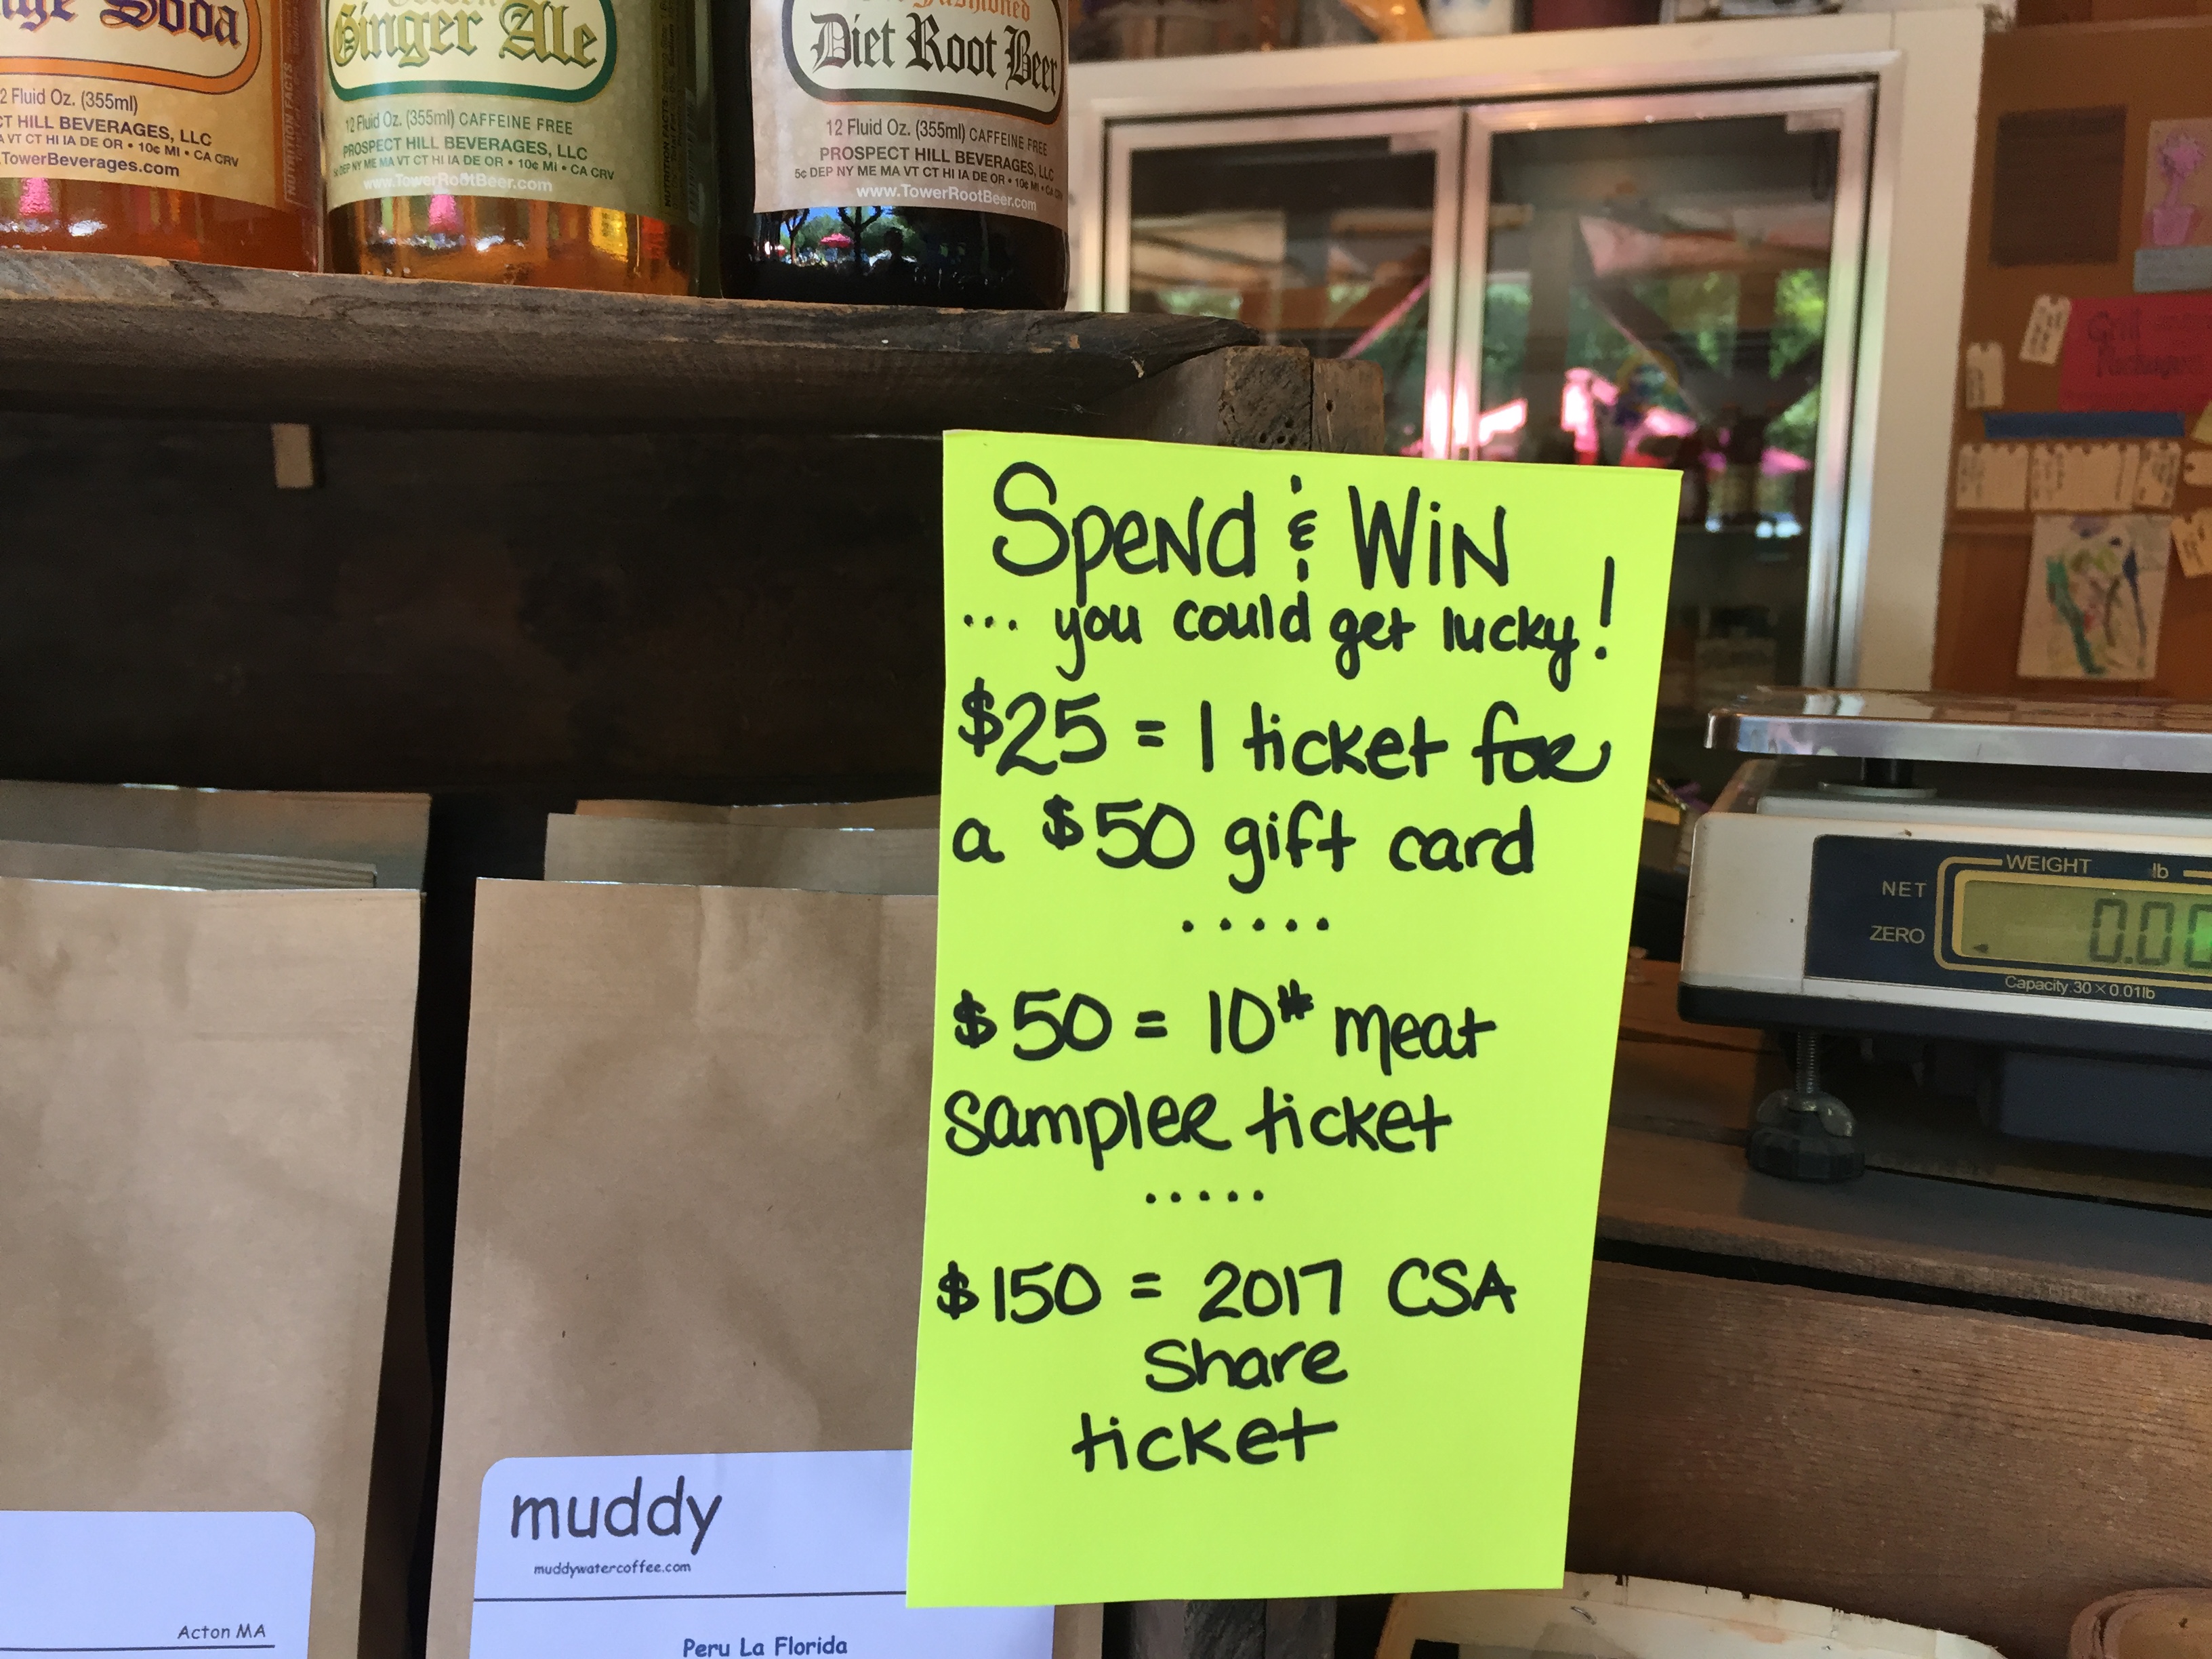 Soda
2 Fluid Oz. (355ml)
HILL BEVERAGES, LLC
VT CT HI IA DE OR • 10¢ MI • CA CRV
TowerBeverages.com
NUTRITION FACTS
Ginger Ale
12 Fluid Oz. (355ml) CAFFEINE FREE
PROSPECT HILL BEVERAGES, LLC
5¢ DEP NY ME MA VT CT HI IA DE OR • 10¢ MI • CA CRV
www.TowerRootBeer.com
Fashioned
Diet Root Beer
12 Fluid Oz. (355ml) CAFFEINE FREE
PROSPECT HILL BEVERAGES, LLC
5¢ DEP NY ME MA VT CT HI IA DE OR • 10¢ MI • CA
www.TowerRootBeer.com
Spend & WiN
... you could get lucky!
$25 = 1 ticket for
a $50 gift card
.....
$50 = 10# meat
sampler ticket
.....
$150 = 2017 CSA
Share
ticket
WEIGHT lb
NET
ZERO
0.00
Capacity:30×0.01lb
Grill
Packages
muddy
muddywatercoffee.com
Peru La Florida
Acton MA